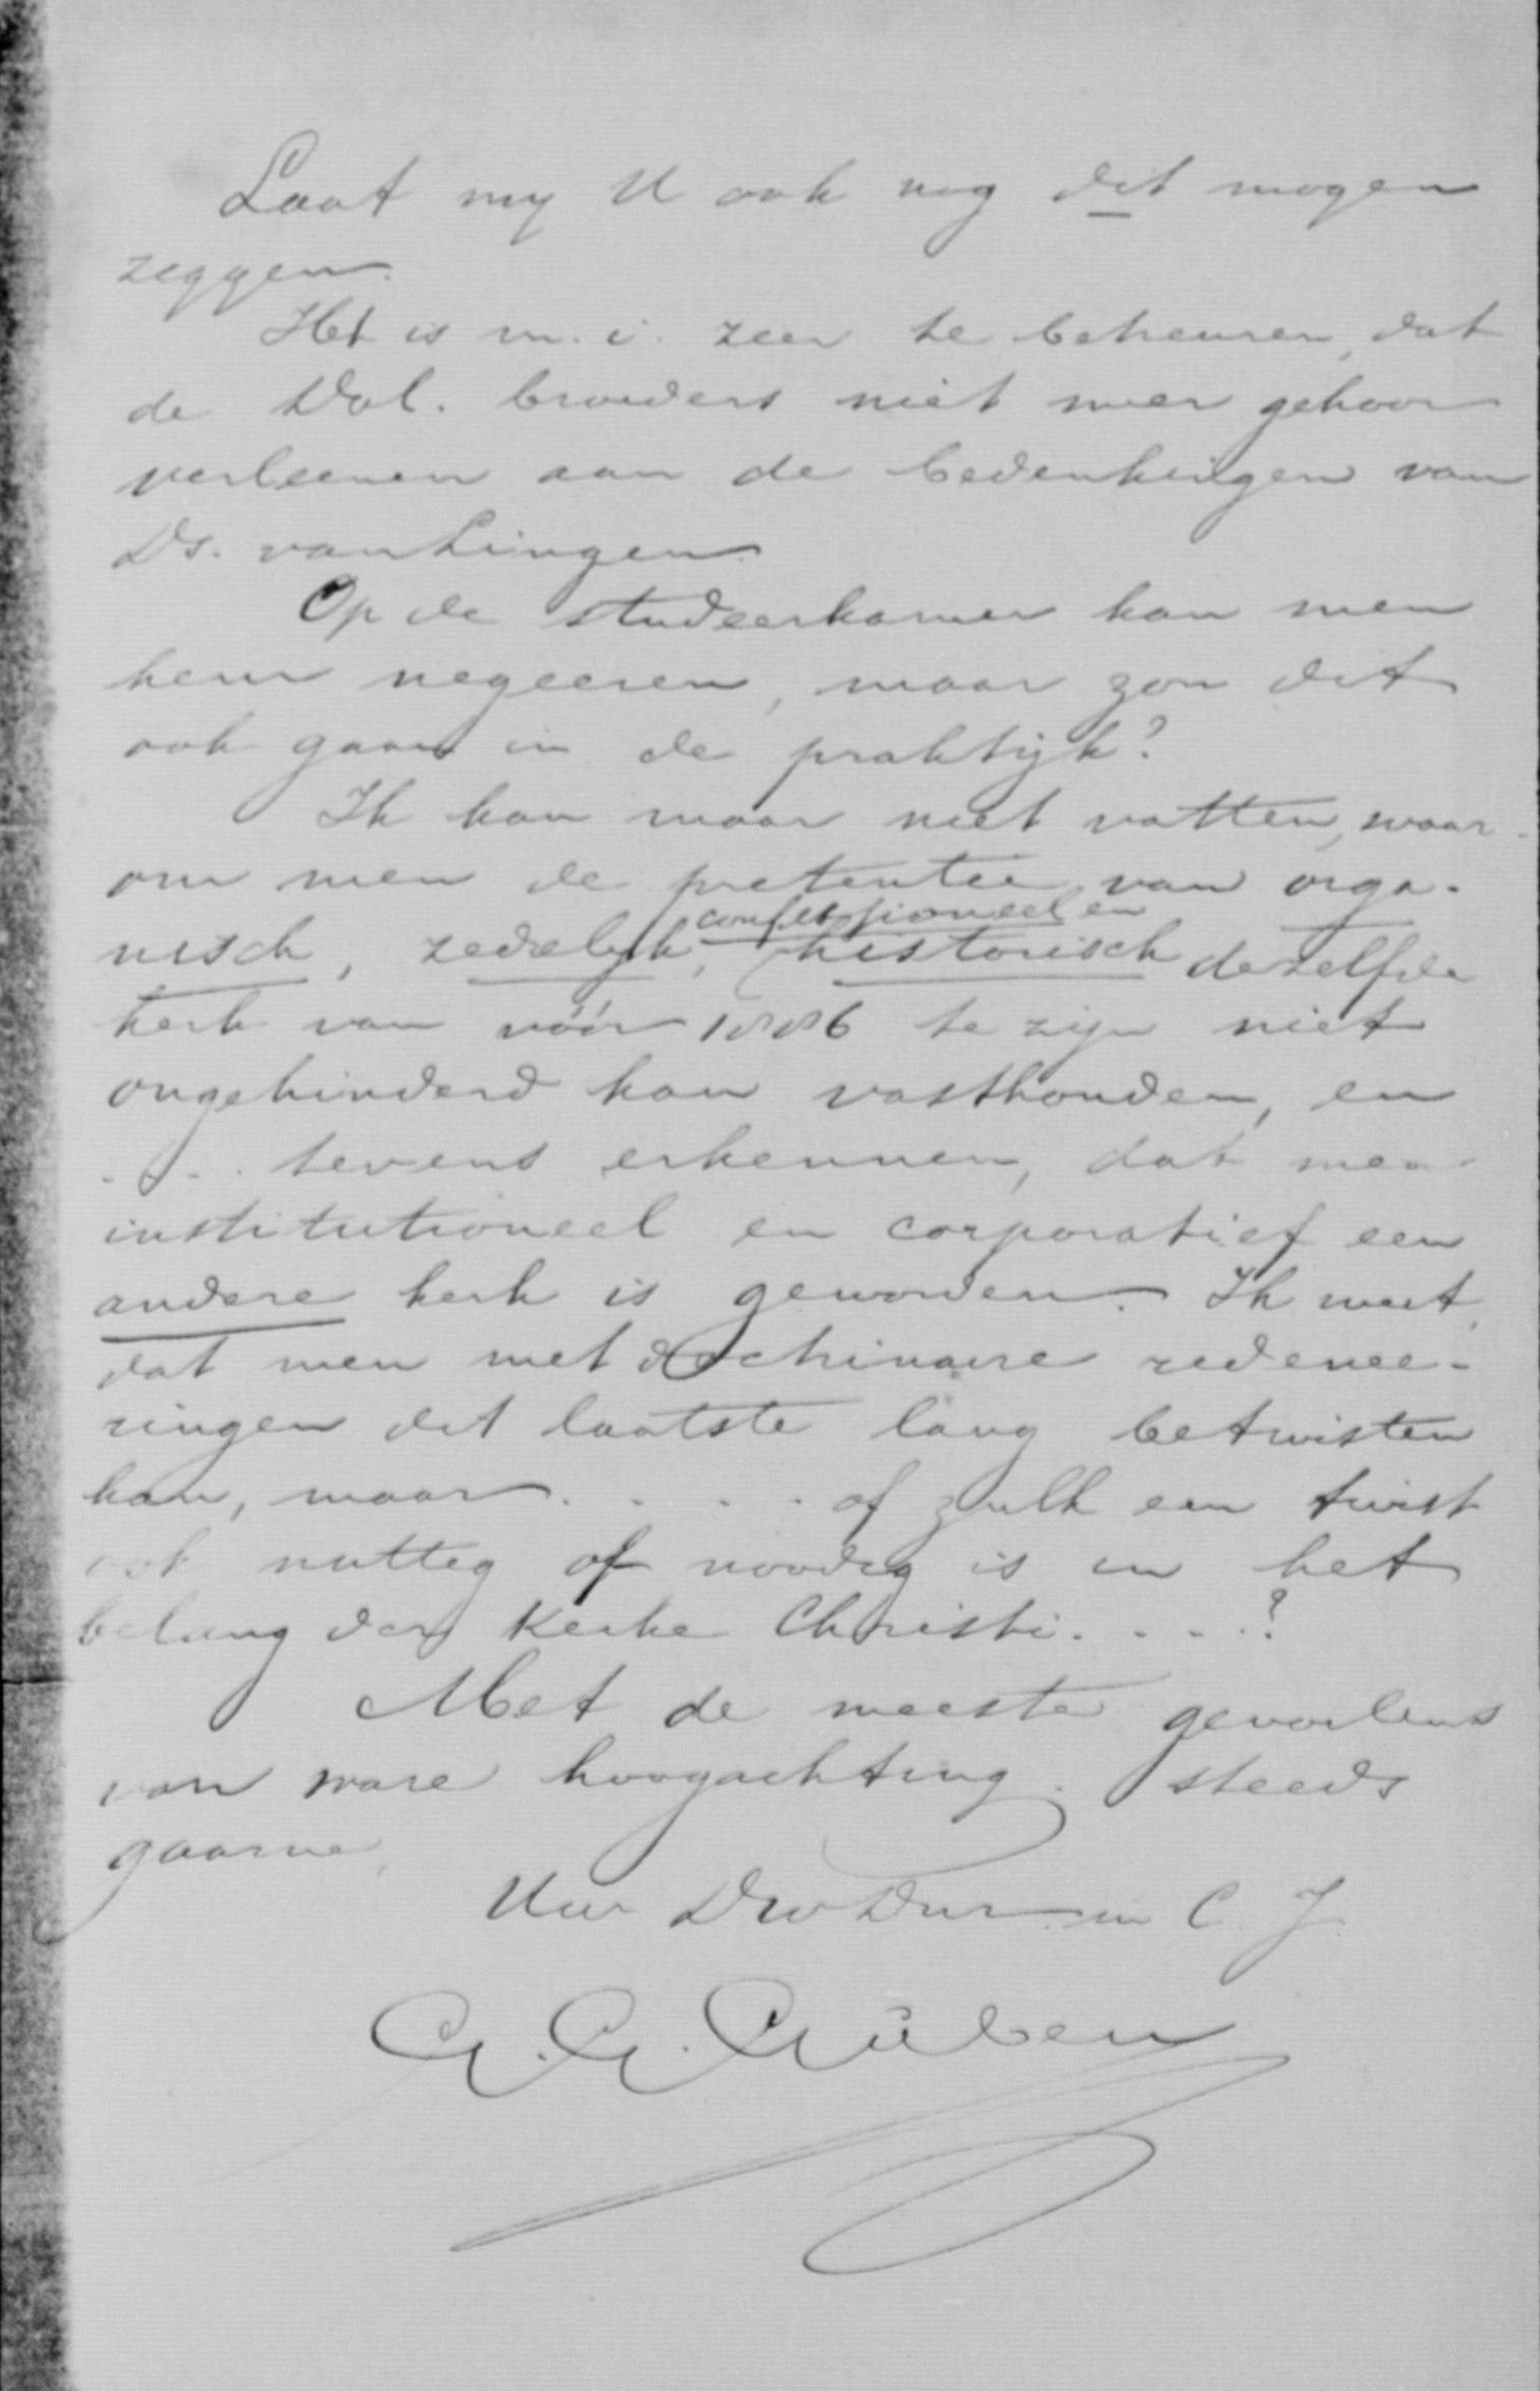 Laat my U ook nog dit mogen
zeggen.
Het is m. i. zeer te betreuren, dat
de Dol. broeders niet meer gehoor
verleenen aan de bedenkingen van
Ds. van Lingen.
Op de studeerkamer kan men
hem negeeren, maar zou dit
ook gaan in de praktijk?
Ik kan maar niet vatten, waar-
om men de pretentie van orga-
confessioneel en
nisch, zedelijk, historisch dezelfde
kerk van vóór 1886 te zijn niet
ongehinderd kan vasthouden, en
... tevens erkennen, dat men
institutioneel en corporatief een
andere kerk is geworden. Ik weet,
dat men met doctrinaire redenee-
ringen dit laatste lang betwisten
kan, maar . . . . of zulk een twist
ook nuttig of noodig is in het
belang der Kerke Christi. . . . ?
Met de meeste gevoelens
van ware hoogachting. steeds
gaarne,
Uw Dw Dnr in C. J.